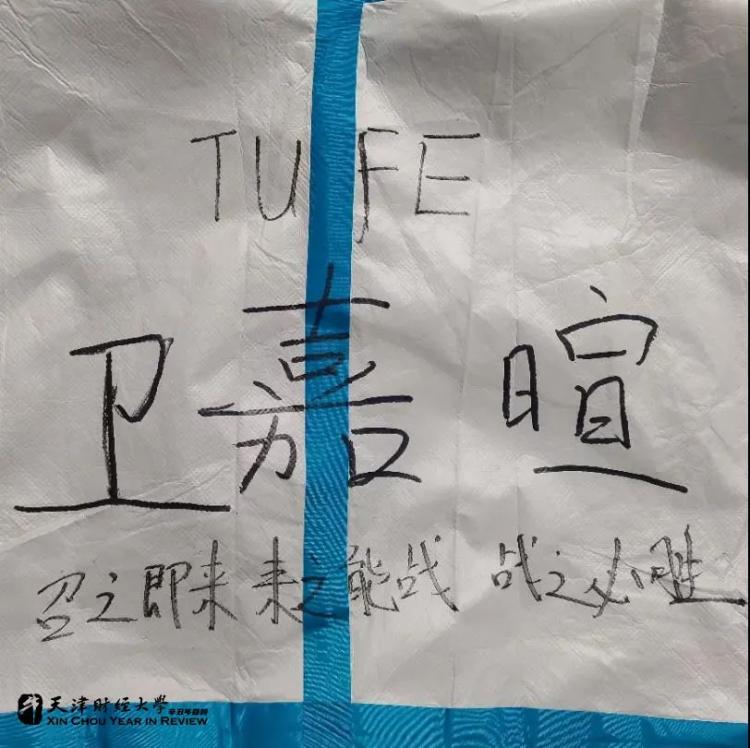 TUFE
卫嘉暄
召之即来 来之能战 战之必胜
天津财经大學
XIN CHOU YEAR IN REVIEW